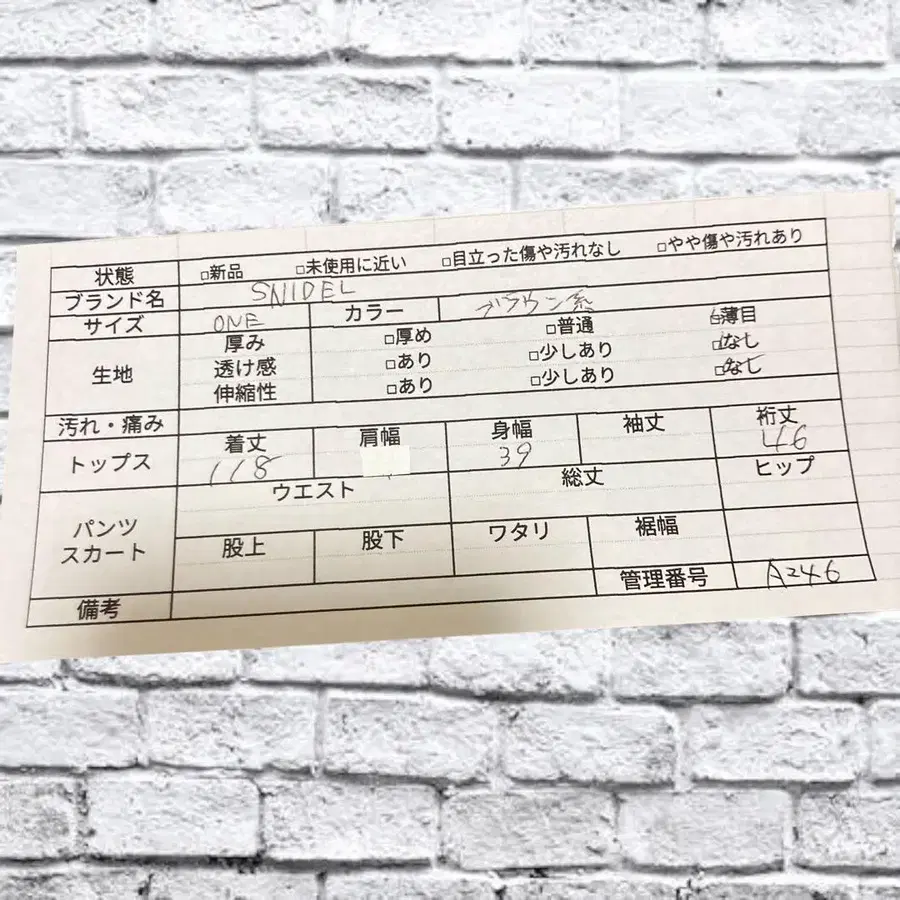 状態 □新品 □未使用に近い □目立った傷や汚れなし □やや傷や汚れあり
ブランド名 SNIDEL
サイズ ONE カラー ブラウン系
生地 厚み □厚め □普通 □薄目
透け感 □あり □少しあり □なし
伸縮性 □あり □少しあり □なし
汚れ・痛み
トップス 着丈 肩幅 身幅 袖丈 裄丈
118 39 46
パンツ スカート ウエスト 総丈 ヒップ
股上 股下 ワタリ 裾幅
備考 管理番号 A246